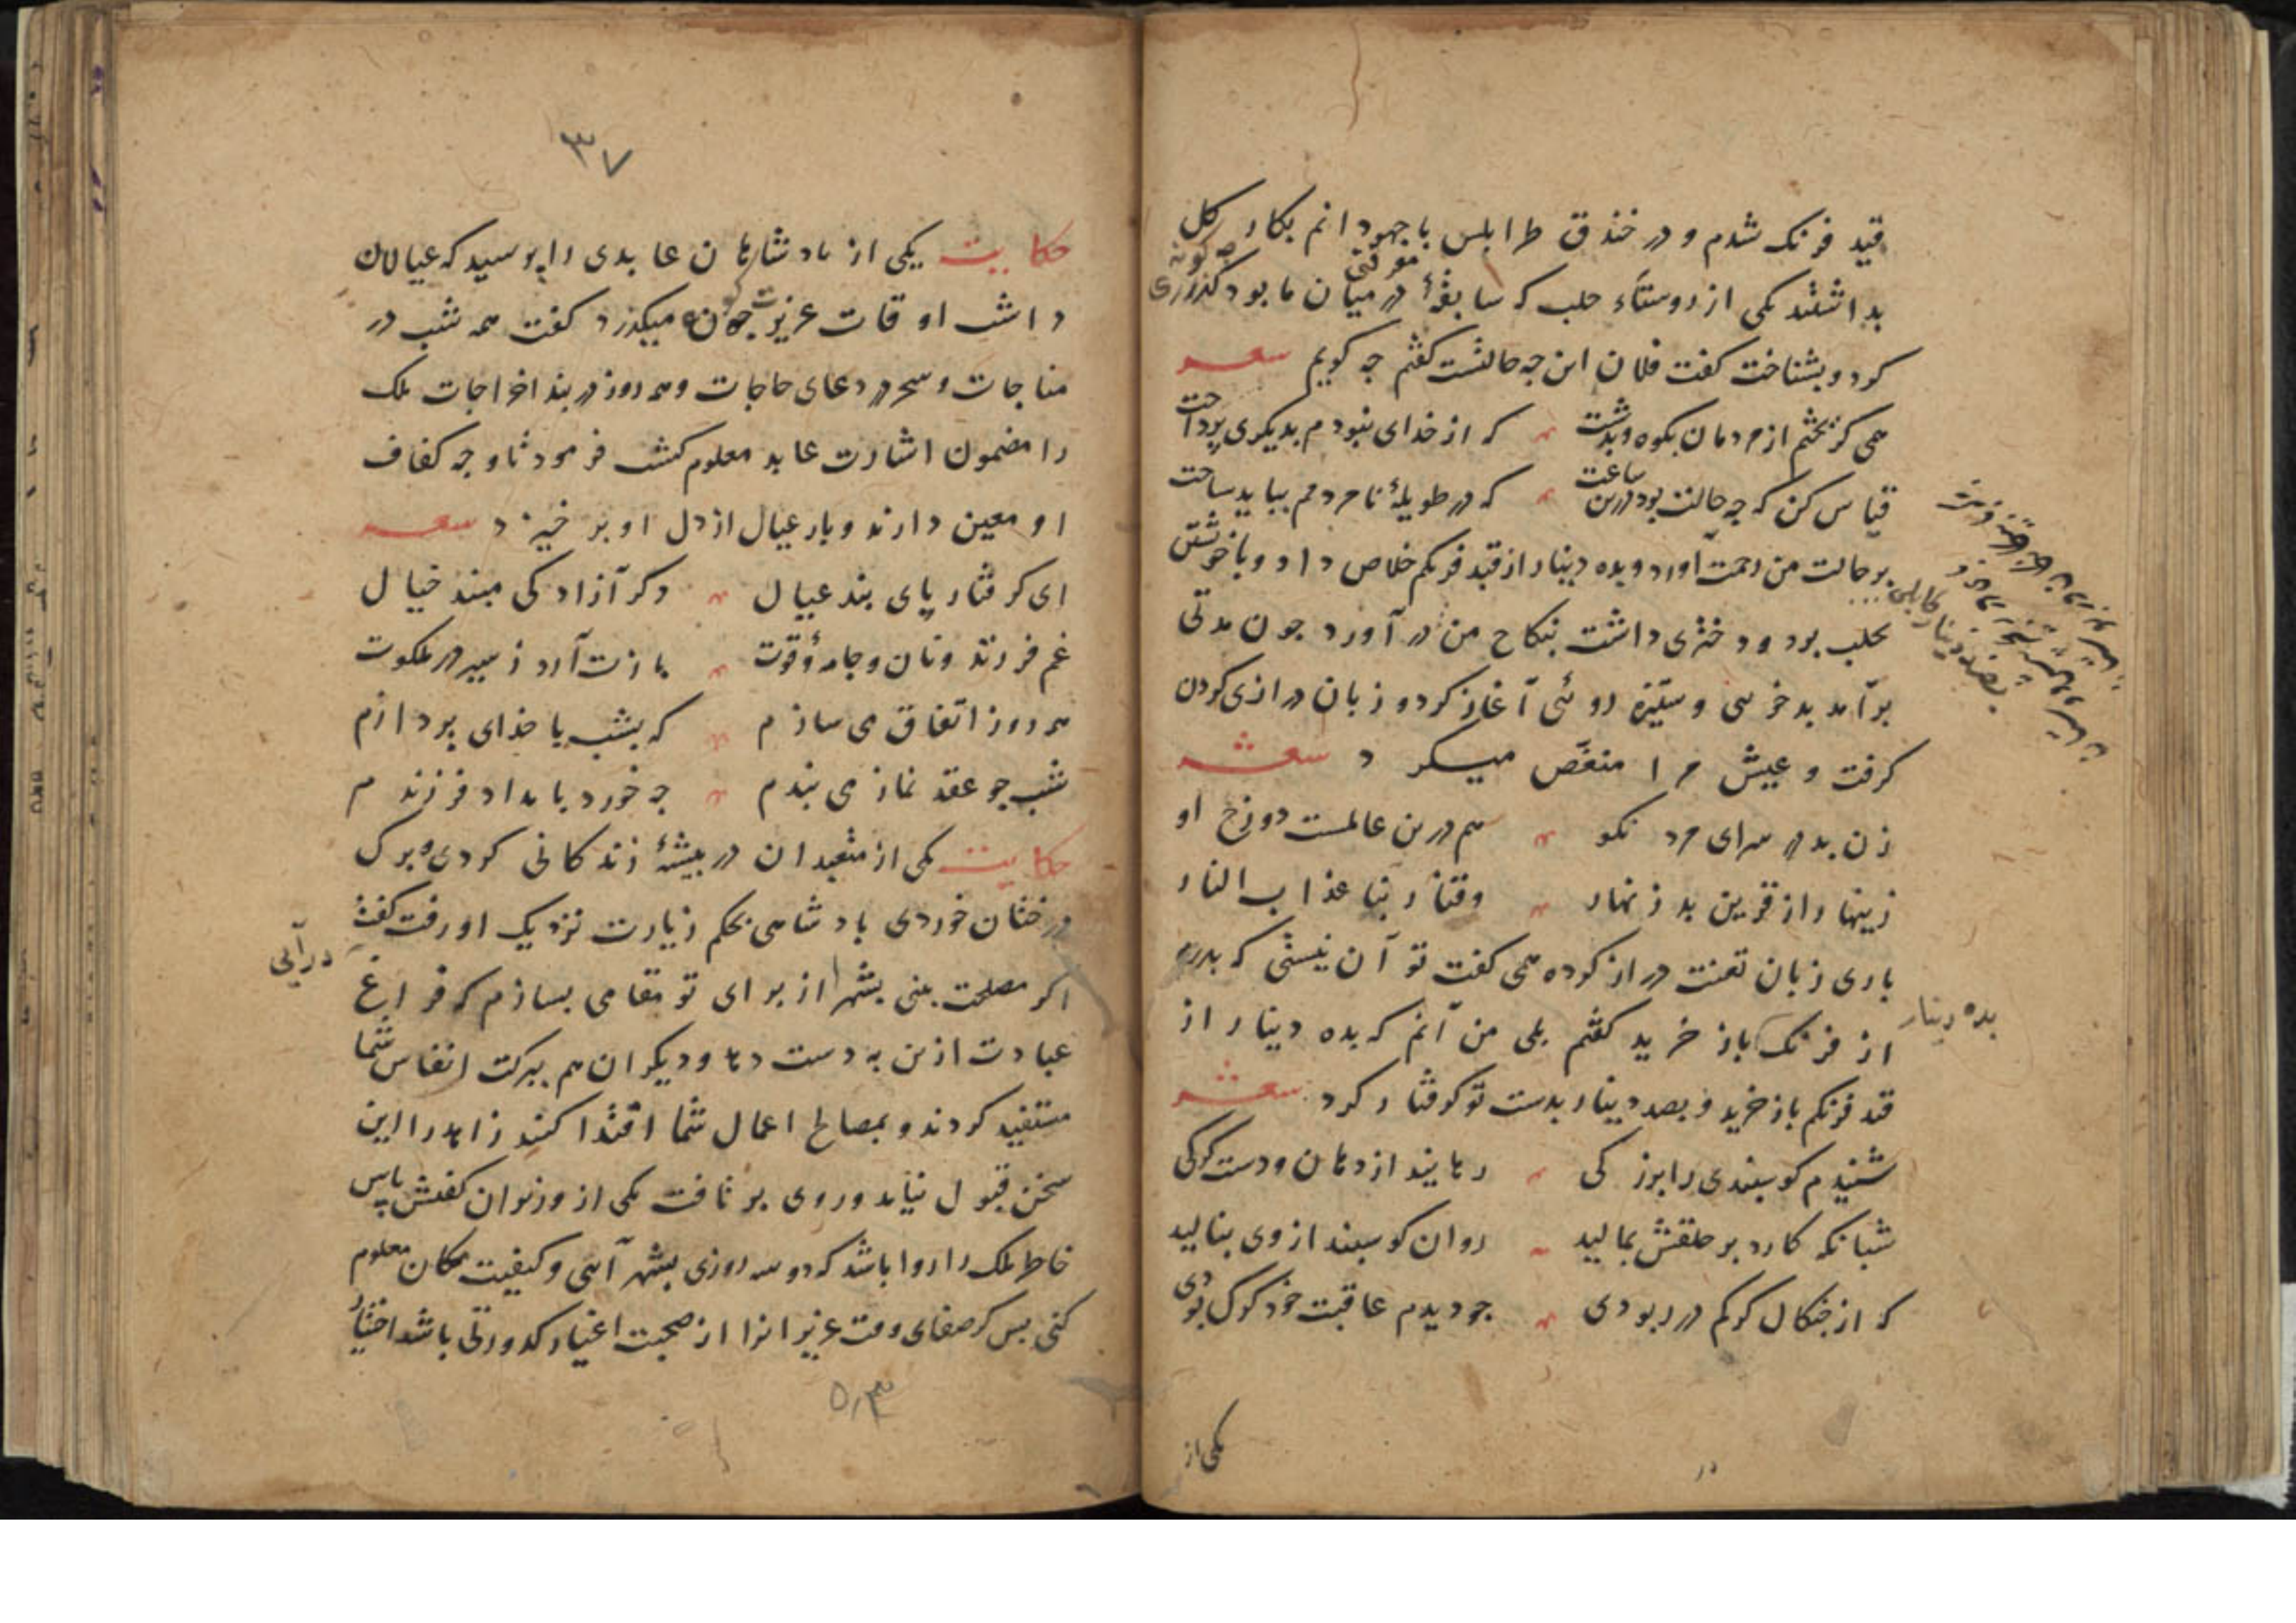 قید فرنک شدم و در خندق طرابلس با جهودانم بکار کل
بداشتند یکی از روستاء حلب که سابقهٔ معرفتی در میان ما بود گذری
کرد و بشناخت کفت فلان این چه حالتست کفتم چه کویم شعر
همی کریختم از مردمان بکوه و بدشت که از خدای نبودم بدیکری پرداخت
قیاس کن که چه حالت بود درین ساعت که در طویلهٔ نامردمم بباید ساخت
بر حالت من رحمت آورد و بده دینار از قید فرنکم خلاص داد و با خویشتن
بحلب برد و دختری داشت بنکاح من در آورد چون مدتی
بر آمد بدخویی و ستیزه روئی آغاز کرد و زبان درازی کردن
کرفت و عیش مرا منغص میکرد شعر
زن بد در سرای مرد نکو هم درین عالمست دوزخ او
زینهار از قرین بد زنهار وقنا ربنا عذاب النار
باری زبان تعنت دراز کرده همی کفت تو آن نیستی که پدرم
از فرنک باز خرید کفتم بلی من آنم که بده دینار از
بده دینار
قید فرنکم باز خرید و بصد دینار بدست تو کرفتار کرد شعر
شنیدم کوسبندی را بزرکی رهانید از دهان و دست کرکی
شبانکه کارد بر حلقش بمالید روان کوسبند از وی بنالید
که از چنکال کرکم در ربودی چو دیدم عاقبت خود کرک بودی
یکی از
۳۷
حکایت یکی از بادشاهان عابدی را پرسید که عیالان
داشت اوقات عزیزت چون میکذرد کفت همه شب در
مناجات و سحر در دعای حاجات و همه روز در بند اخراجات ملک
را مضمون اشارت عابد معلوم کشت فرمود تا وجه کفاف
او معین دارند و بار عیال از دل او بر خیزد شعر
ای کرفتار پای بند عیال دکر آزادکی مبند خیال
غم فرزند و نان و جامه و قوت بازت آرد ز سیر در ملکوت
همه روز اتفاق می سازم که بشب با خدای پردازم
شب چو عقد نماز می بندم چه خورد بامداد فرزندم
حکایت یکی از متعبدان در بیشهٔ زندکانی کردی و برک
درختان خوردی بادشاهی بحکم زیارت نزدیک او رفت کفت
در آیی
اکر مصلحت بینی بشهر از برای تو مقامی بسازم که فراغ
عبادت ازین به دست دهد و دیکران هم ببرکت انفاس شما
مستفید کردند و بمصالح اعمال شما اقتدا کنند زاهد را این
سخن قبول نیامد و روی بر تافت یکی از وزیران کفتش پاس
خاطر ملک را روا باشد که دو سه روزی بشهر آیی و کیفیت مکان معلوم
کنی بس کر صفای وقت عزیزانرا از صحبت اغیار کدورتی باشد اختیار